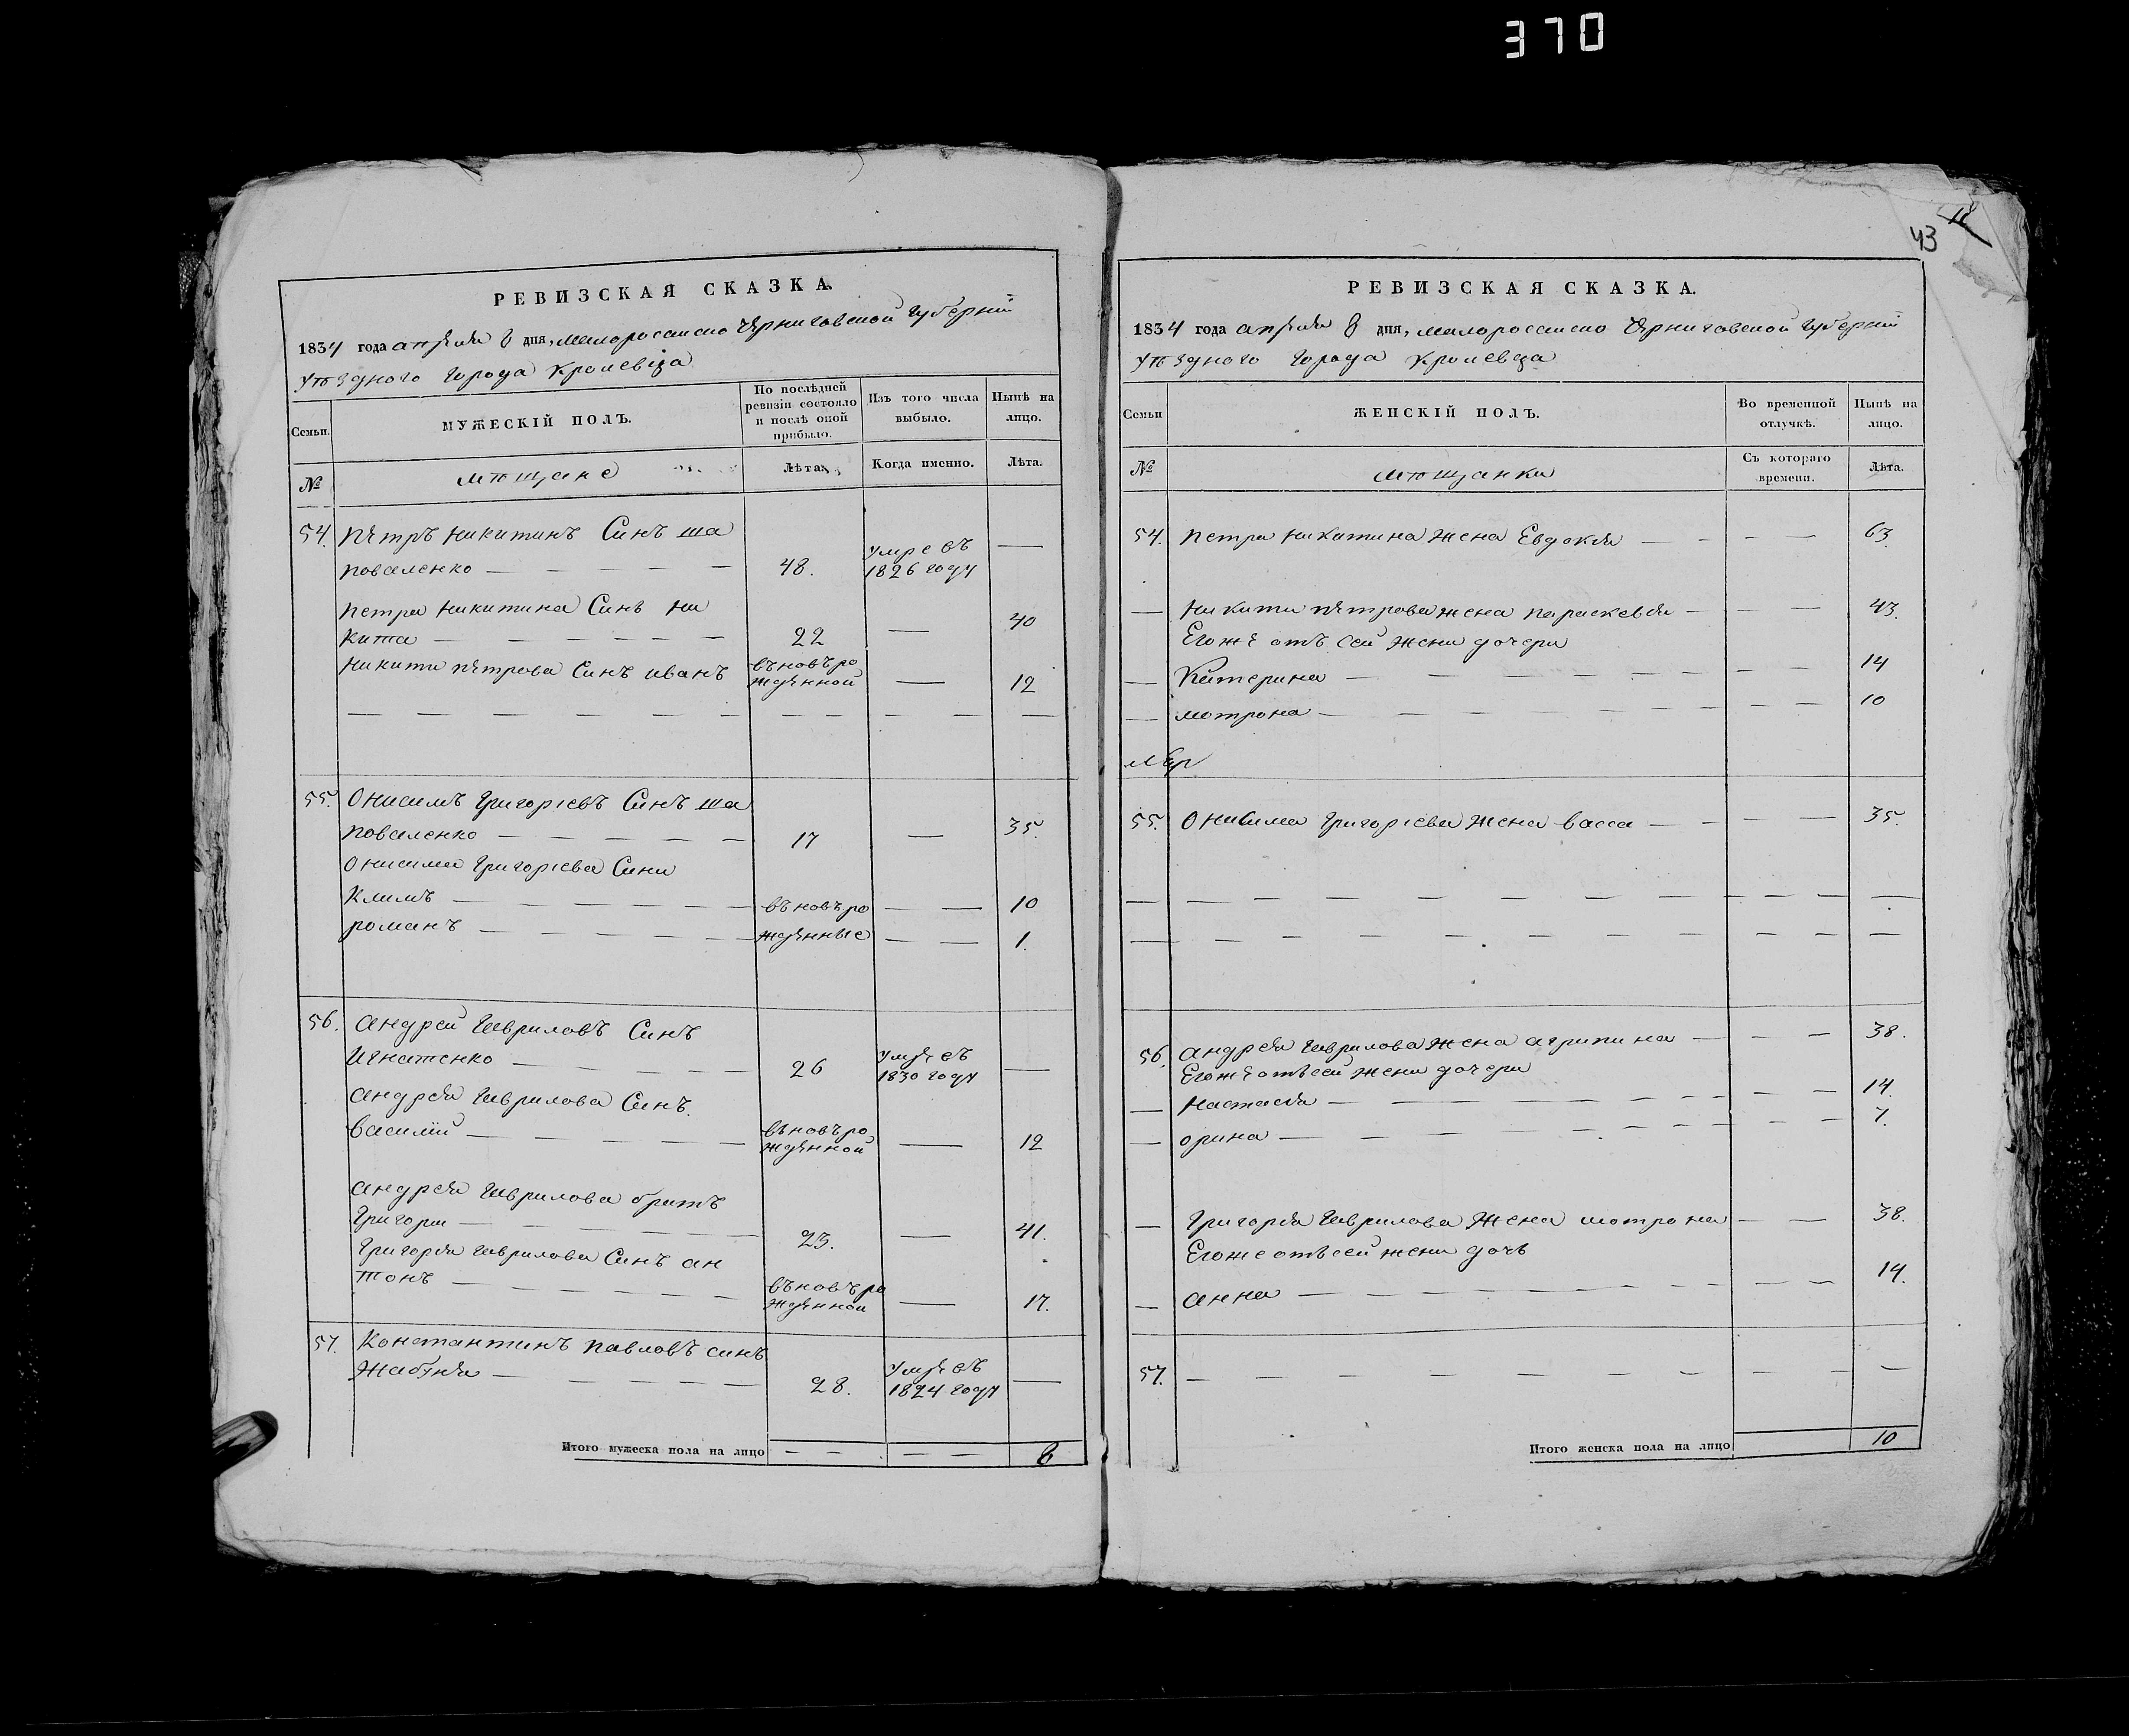 370
РЕВИЗСКАЯ СКАЗКА.
1834 года апреля 8 дня, малоросииско Черниговской губернїи
уѣздного города Кролевца
Семьи.
МУЖЕСКІЙ ПОЛЪ.
По послѣдней ревизіи состояло и послѣ оной прибыло.
Изъ того числа выбыло.
Нынѣ на лицо.
№
мѣщане
Лѣта.
Когда именно.
Лѣта.
54. Петръ Никитинъ Синъ Ша
поваленко 48. умре въ 1826 году
Петра Никитина Синъ Ни
кита 22 40
Никити Петрова Синъ Иванъ въновъро
жденной 12
55. Онисимъ Григорїевъ Синъ Ша
поваленко 17 35.
Онисима Григорїева Сини
Климъ въновъро 10
романъ жденные 1.
56. Андрей Гавриловъ Синъ
Игнатенко 26 умре въ 1830 году
Андрея Гаврилова Синъ
Василїй въновъро
жденной 12
Андрея Гаврилова братъ
Григори 23. 41.
Григорія Гаврилова Синъ ан
тонъ въновъро
жденной 17.
57. Константинъ Павловъ синъ
28. умре въ 1824 году
Итого мужеска пола на лицо 8
43
РЕВИЗСКАЯ СКАЗКА.
1834 года апреля 8 дня, малоросииско Черниговской губернїи
уѣздного города Кролевца
Семьи
ЖЕНСКІЙ ПОЛЪ.
Во временной отлучкѣ.
Нынѣ на лицо.
№
мѣщанки
Съ котораго времени.
Лѣта.
54. Петра Никитина жена Евдокія 63.
Никити Петрова жена Параскевія 43.
Егоже отъ сей жени дочери
Катерина 14
мотрона 10
55. Онисима Григорїева жена васса 35.
56. Андрея Гаврилова жена агрипина 38.
Егоже отъ сей жени дочери
Настасія 14.
орина 7.
Григорія Гаврилова жена мотрона 38.
Егоже отъ сей жени дочь
анна 14.
57.
Итого женска пола на лицо 10